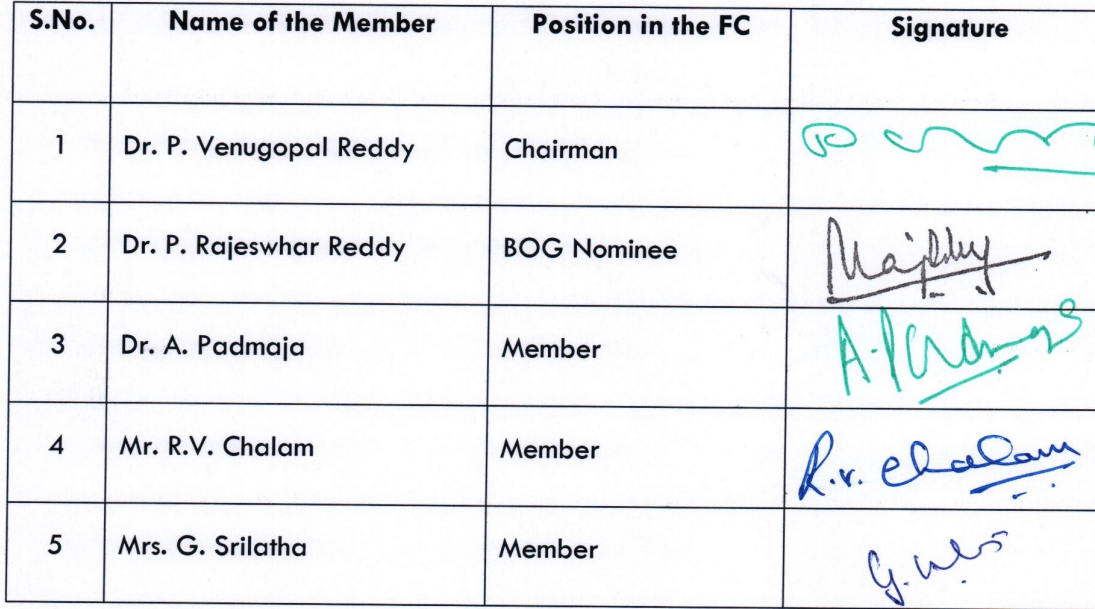 S.No. Name of the Member Position in the FC Signature
1 Dr. P. Venugopal Reddy Chairman
2 Dr. P. Rajeswhar Reddy BOG Nominee
3 Dr. A. Padmaja Member A. Padmaja
4 Mr. R.V. Chalam Member R.v. Chalam
5 Mrs. G. Srilatha Member